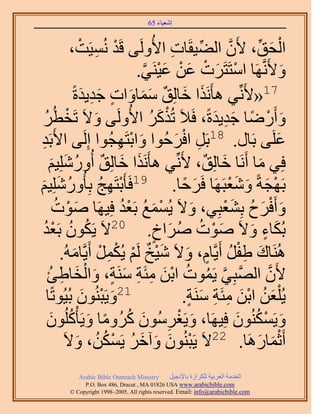 إشعياء 65
الْحَقِّ، لأَنَّ الضِّيقَاتِ الأُولَى قَدْ نُسِيَتْ،
وَلأَنَّهَا اسْتَتَرَتْ عَنْ عَيْنَيَّ.
17«لأَنِّي هأَنَذَا خَالِقٌ سَمَاوَاتٍ جَدِيدَةً
وَأَرْضًا جَدِيدَةً، فَلاَ تُذْكَرُ الأُولَى وَلاَ تَخْطُرُ
عَلَى بَال. 18بَلِ افْرَحُوا وَابْتَهِجُوا إِلَى الأَبَدِ
فِي مَا أَنَا خَالِقٌ، لأَنِّي هأَنَذَا خَالِقٌ أُورُشَلِيمَ
بَهْجَةً وَشَعْبَهَا فَرَحًا. 19فَأَبْتَهِجُ بِأُورُشَلِيمَ
وَأَفْرَحُ بِشَعْبِي، وَلاَ يُسْمَعُ بَعْدُ فِيهَا صَوْتُ
بُكَاءٍ وَلاَ صَوْتُ صُرَاخٍ. 20لاَ يَكُونُ بَعْدُ
هُنَاكَ طِفْلُ أَيَّامٍ، وَلاَ شَيْخٌ لَمْ يُكْمِلْ أَيَّامَهُ.
لأَنَّ الصَّبِيَّ يَمُوتُ ابْنَ مِئَةِ سَنَةٍ، وَالْخَاطِئُ
يُلْعَنُ ابْنَ مِئَةِ سَنَةٍ. 21وَيَبْنُونَ بُيُوتًا
وَيَسْكُنُونَ فِيهَا، وَيَغْرِسُونَ كُرُومًا وَيَأْكُلُونَ
أَثْمَارَهَا. 22لاَ يَبْنُونَ وَآخَرُ يَسْكُنُ، وَلاَ
Arabic Bible Outreach Ministry الخدمة العربية للكرازة بالإنجيل
P.O. Box 486, Dracut , MA 01826 USA www.arabicbible.com
© Copyright 1998–2005, All rights reserved. Email: info@arabicbible.com